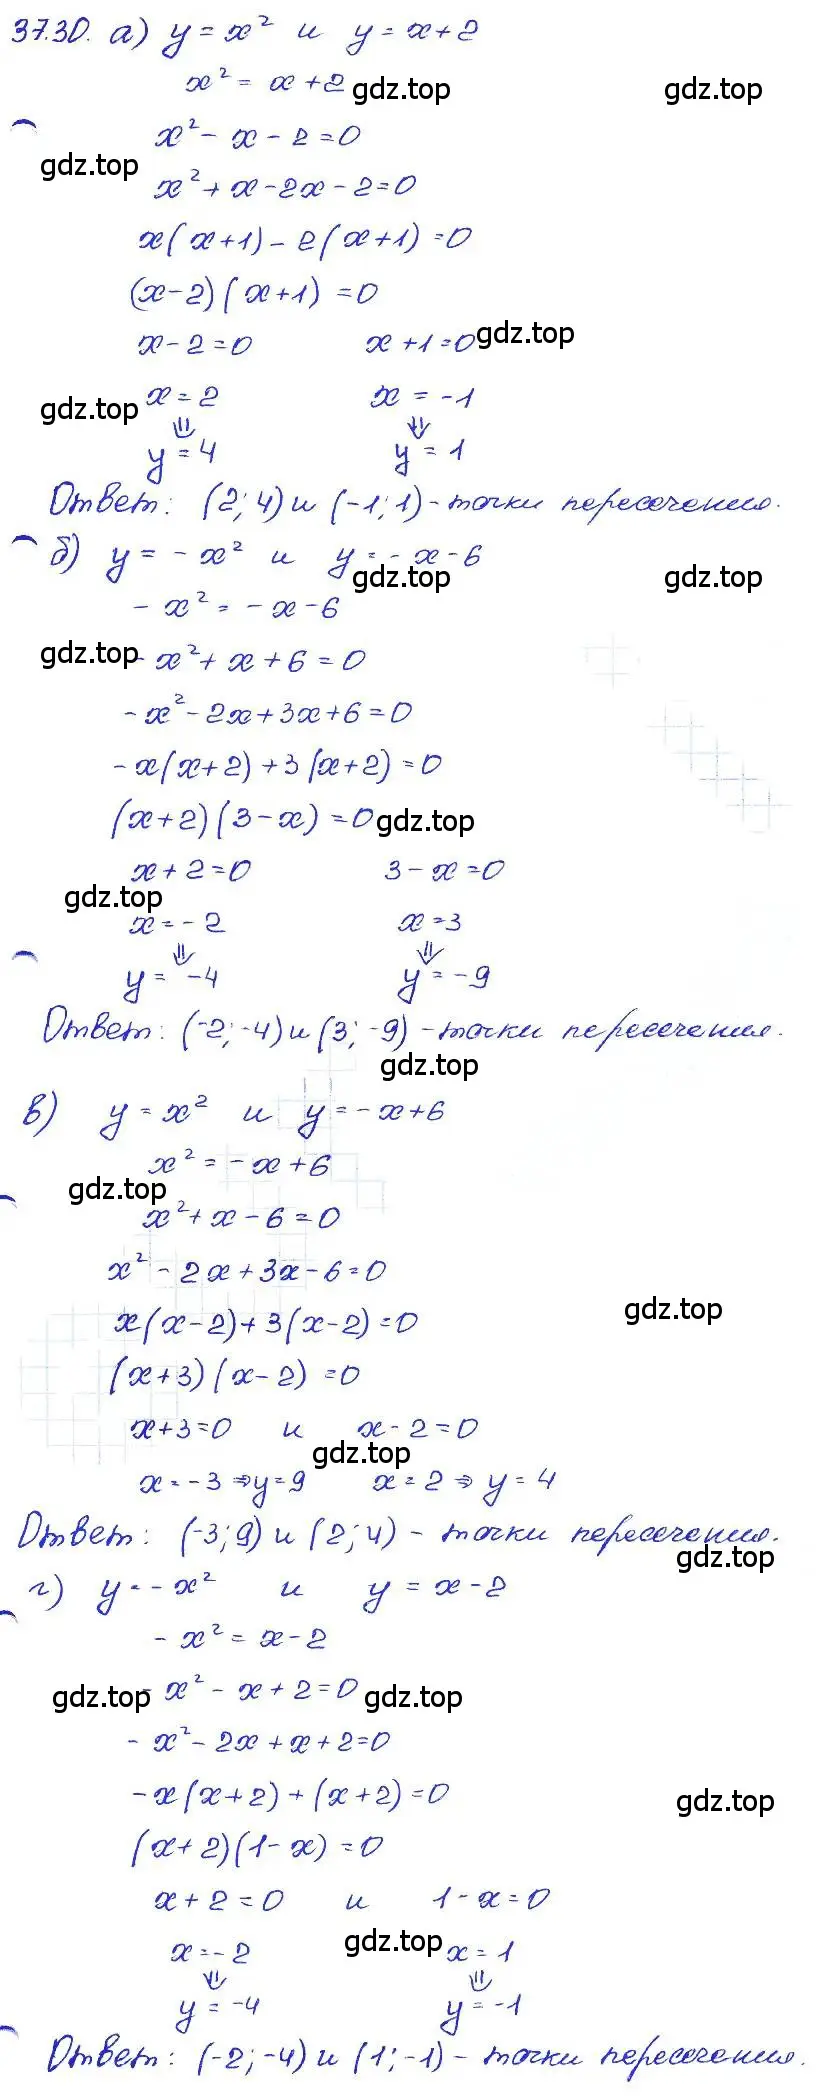 37.30. а) y = x² и y = x+2
x² = x+2 gdz.top gdz.top
x² - x - 2 = 0
gdz.top
x² + x - 2x - 2 = 0
x(x+1) - 2(x+1) = 0
(x-2)(x+1) = 0
x - 2 = 0 x + 1 = 0 gdz.top
gdz.top x = 2 x = -1
⇓ ⇓
y = 4 y = 1
Ответ: (2; 4) и (-1; 1) - точки пересечения.
б) y = - x² и y = - x - 6
gdz.top gdz.top
- x² = - x - 6
gdz.top - x² + x + 6 = 0
- x² - 2x + 3x + 6 = 0
- x(x+2) + 3(x+2) = 0
(x+2)(3-x) = 0 gdz.top
x + 2 = 0 3 - x = 0
gdz.top
x = - 2 x = 3
⇓ ⇓
y = -4 y = -9
Ответ: (-2; -4) и (3; -9) - точки пересечения.
gdz.top
в) y = x² и y = - x + 6
x² = - x + 6
gdz.top
x² + x - 6 = 0
x² - 2x + 3x - 6 = 0
gdz.top
x(x-2) + 3(x-2) = 0
(x+3)(x-2) = 0
x+3 = 0 и x - 2 = 0
gdz.top
x = - 3 ⇒ y = 9 x = 2 ⇒ y = 4
Ответ: (-3; 9) и (2; 4) - точки пересечения.
gdz.top
г) y = - x² и y = x - 2
- x² = x - 2
gdz.top - x² - x + 2 = 0 gdz.top
- x² - 2x + x + 2 = 0
- x(x+2) + (x+2) = 0 gdz.top
(x+2)(1-x) = 0
x + 2 = 0 и 1 - x = 0
gdz.top
x = - 2 x = 1
⇓ ⇓
y = -4 y = -1
Ответ: (-2; -4) и (1; -1) - точки пересечения.